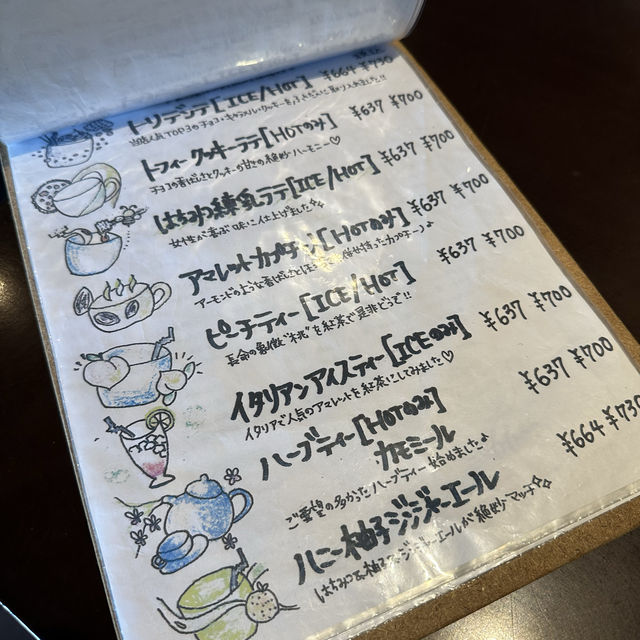 トリデンテ[ICE/HOT] ¥664 ¥730
トフィークッキーラテ[HOTのみ] ¥637 ¥700
チョコの香ばしさとクッキーが甘さの絶妙ハーモニー♡
はちみつ練乳ラテ[ICE/HOT] ¥637 ¥700
女性が喜ぶ味に仕上げました♪
アマレットカプチーノ[HOTのみ] ¥637 ¥700
アーモンドのような香ばしさ
ピーチティー[ICE/HOT] ¥637 ¥700
長命の象徴“桃”を紅茶で是非どうぞ!!
イタリアンアイスティー[ICEのみ] ¥637 ¥700
イタリアで人気のアマレットを紅茶にしてみました♡
ハーブティー[HOTのみ] ¥637 ¥700
カモミール
ご要望の多かったハーブティー始めました♪
ハニー柚子ジンジャーエール ¥664 ¥730
はちみつ&柚子とジンジャーエールが絶妙にマッチ☆☆